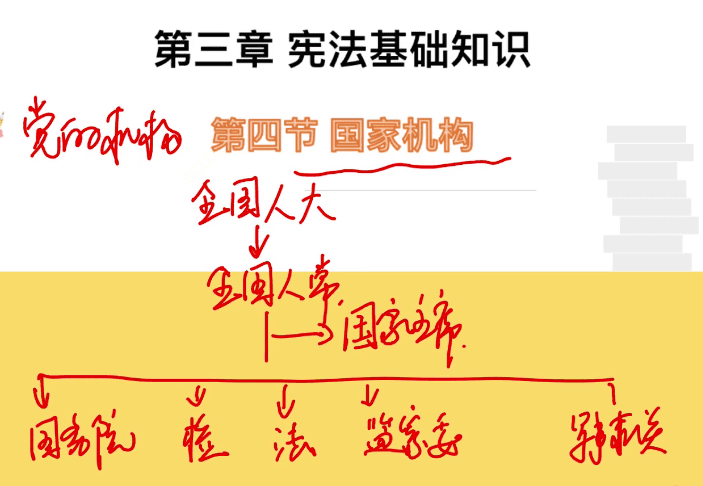 第三章 宪法基础知识
党的机构 第四节 国家机构
全国人大
全国人常
国家主席
国务院 检 法 监察委